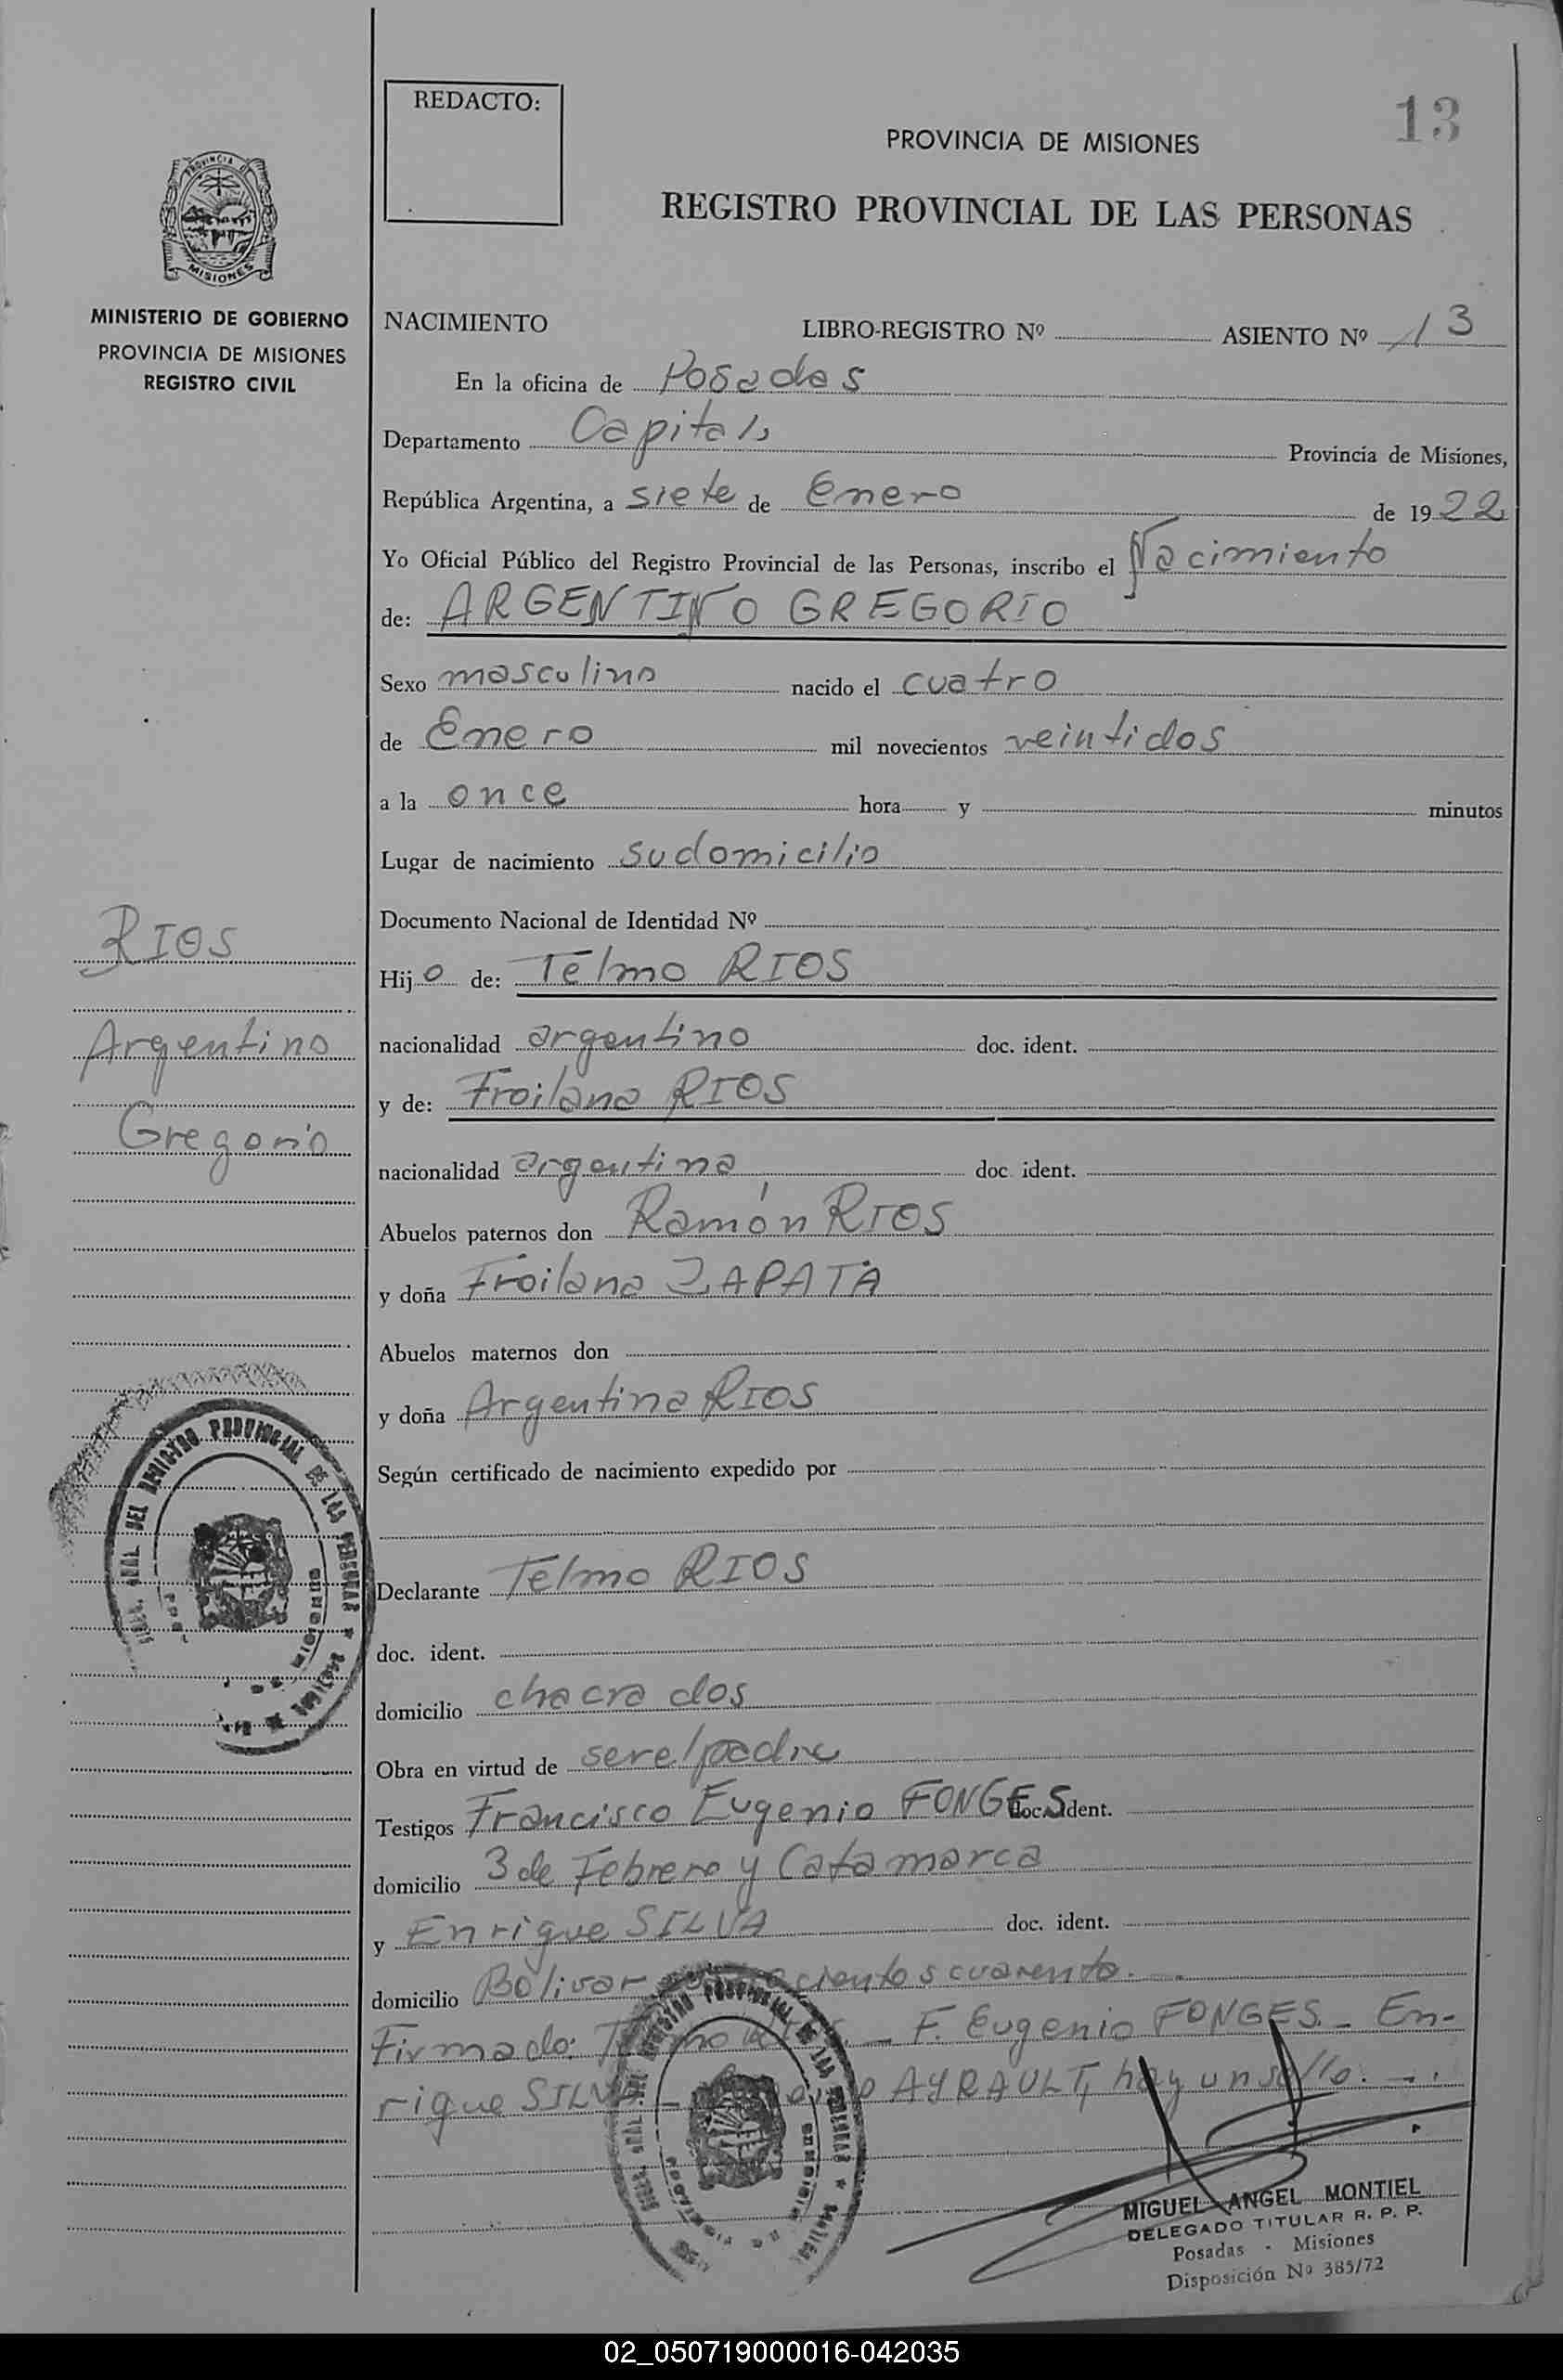 REDACTO:
13
PROVINCIA DE MISIONES
REGISTRO PROVINCIAL DE LAS PERSONAS
PROVINCIA DE
MISIONES
MINISTERIO DE GOBIERNO
PROVINCIA DE MISIONES
REGISTRO CIVIL
NACIMIENTO LIBRO-REGISTRO Nº ASIENTO Nº 13
En la oficina de Posadas
Departamento Capital, Provincia de Misiones,
República Argentina, a siete de Enero de 1922
Yo Oficial Público del Registro Provincial de las Personas, inscribo el Nacimiento
de: ARGENTINO GREGORIO
Sexo masculino nacido el cuatro
de Enero mil novecientos veintidos
a la once hora y minutos
Lugar de nacimiento su domicilio
Documento Nacional de Identidad Nº
RIOS
Argentino
Gregorio
Hijo de: Telmo RIOS
nacionalidad argentino doc. ident.
y de: Froilana RIOS
nacionalidad argentina doc. ident.
Abuelos paternos don Ramón RIOS
y doña Froilana ZAPATA
Abuelos maternos don
y doña Argentina RIOS
Según certificado de nacimiento expedido por
Declarante Telmo RIOS
doc. ident.
domicilio chacra dos
Obra en virtud de ser el padre
Testigos Francisco Eugenio FONGES doc. ident.
domicilio 3 de Febrero y Catamarca
y Enrique SILVA doc. ident.
domicilio Bolivar cuarenta.
Firmado: Telmo RIOS. _ F. Eugenio FONGES. _ En-
rique SILVA _ AYRAULT, hay un sello. _ .
DEL REGISTRO PROVINCIAL DE LAS PERSONAS
REGISTRO PROVINCIAL DE LAS PERSONAS
MIGUEL ANGEL MONTIEL
DELEGADO TITULAR R. P. P.
Posadas - Misiones
Disposición Nº 385/72
02_050719000016-042035